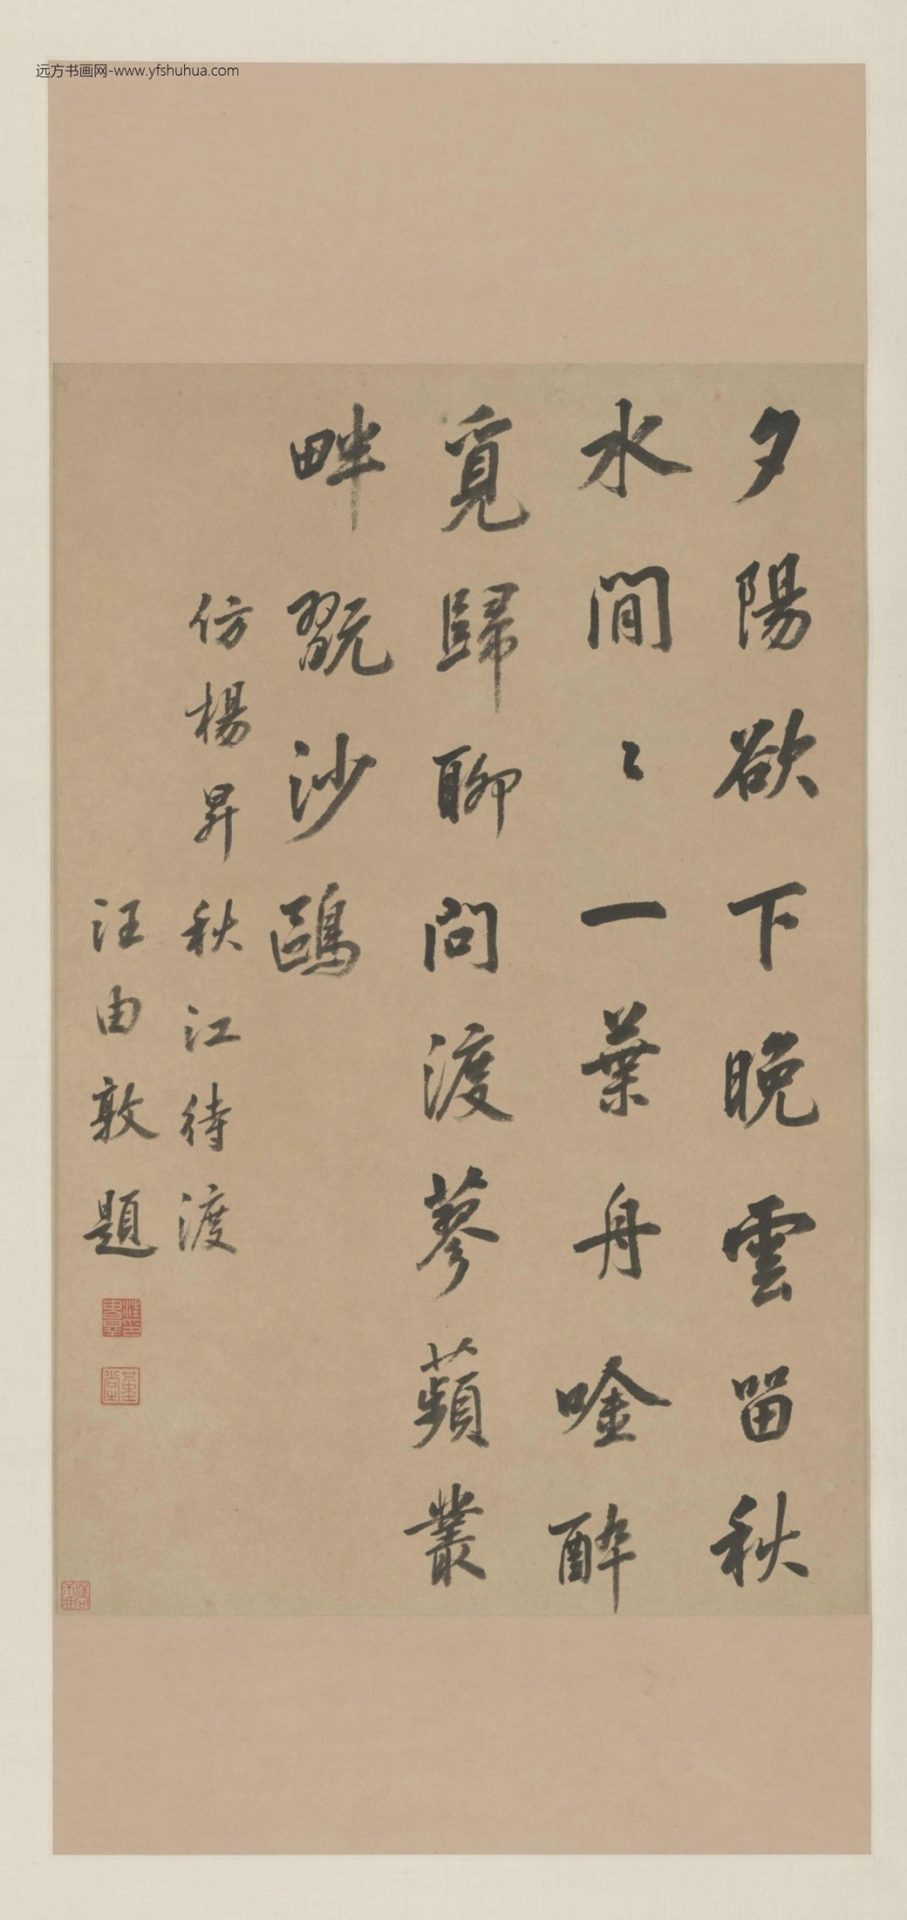 远方书画网-www.yfshuhua.com
夕陽欲下晚雲留秋
水間〻一葉舟唫醉
覓歸聊問渡蓼蘋叢
畔翫沙鷗
仿楊昇秋江待渡
汪由敦題